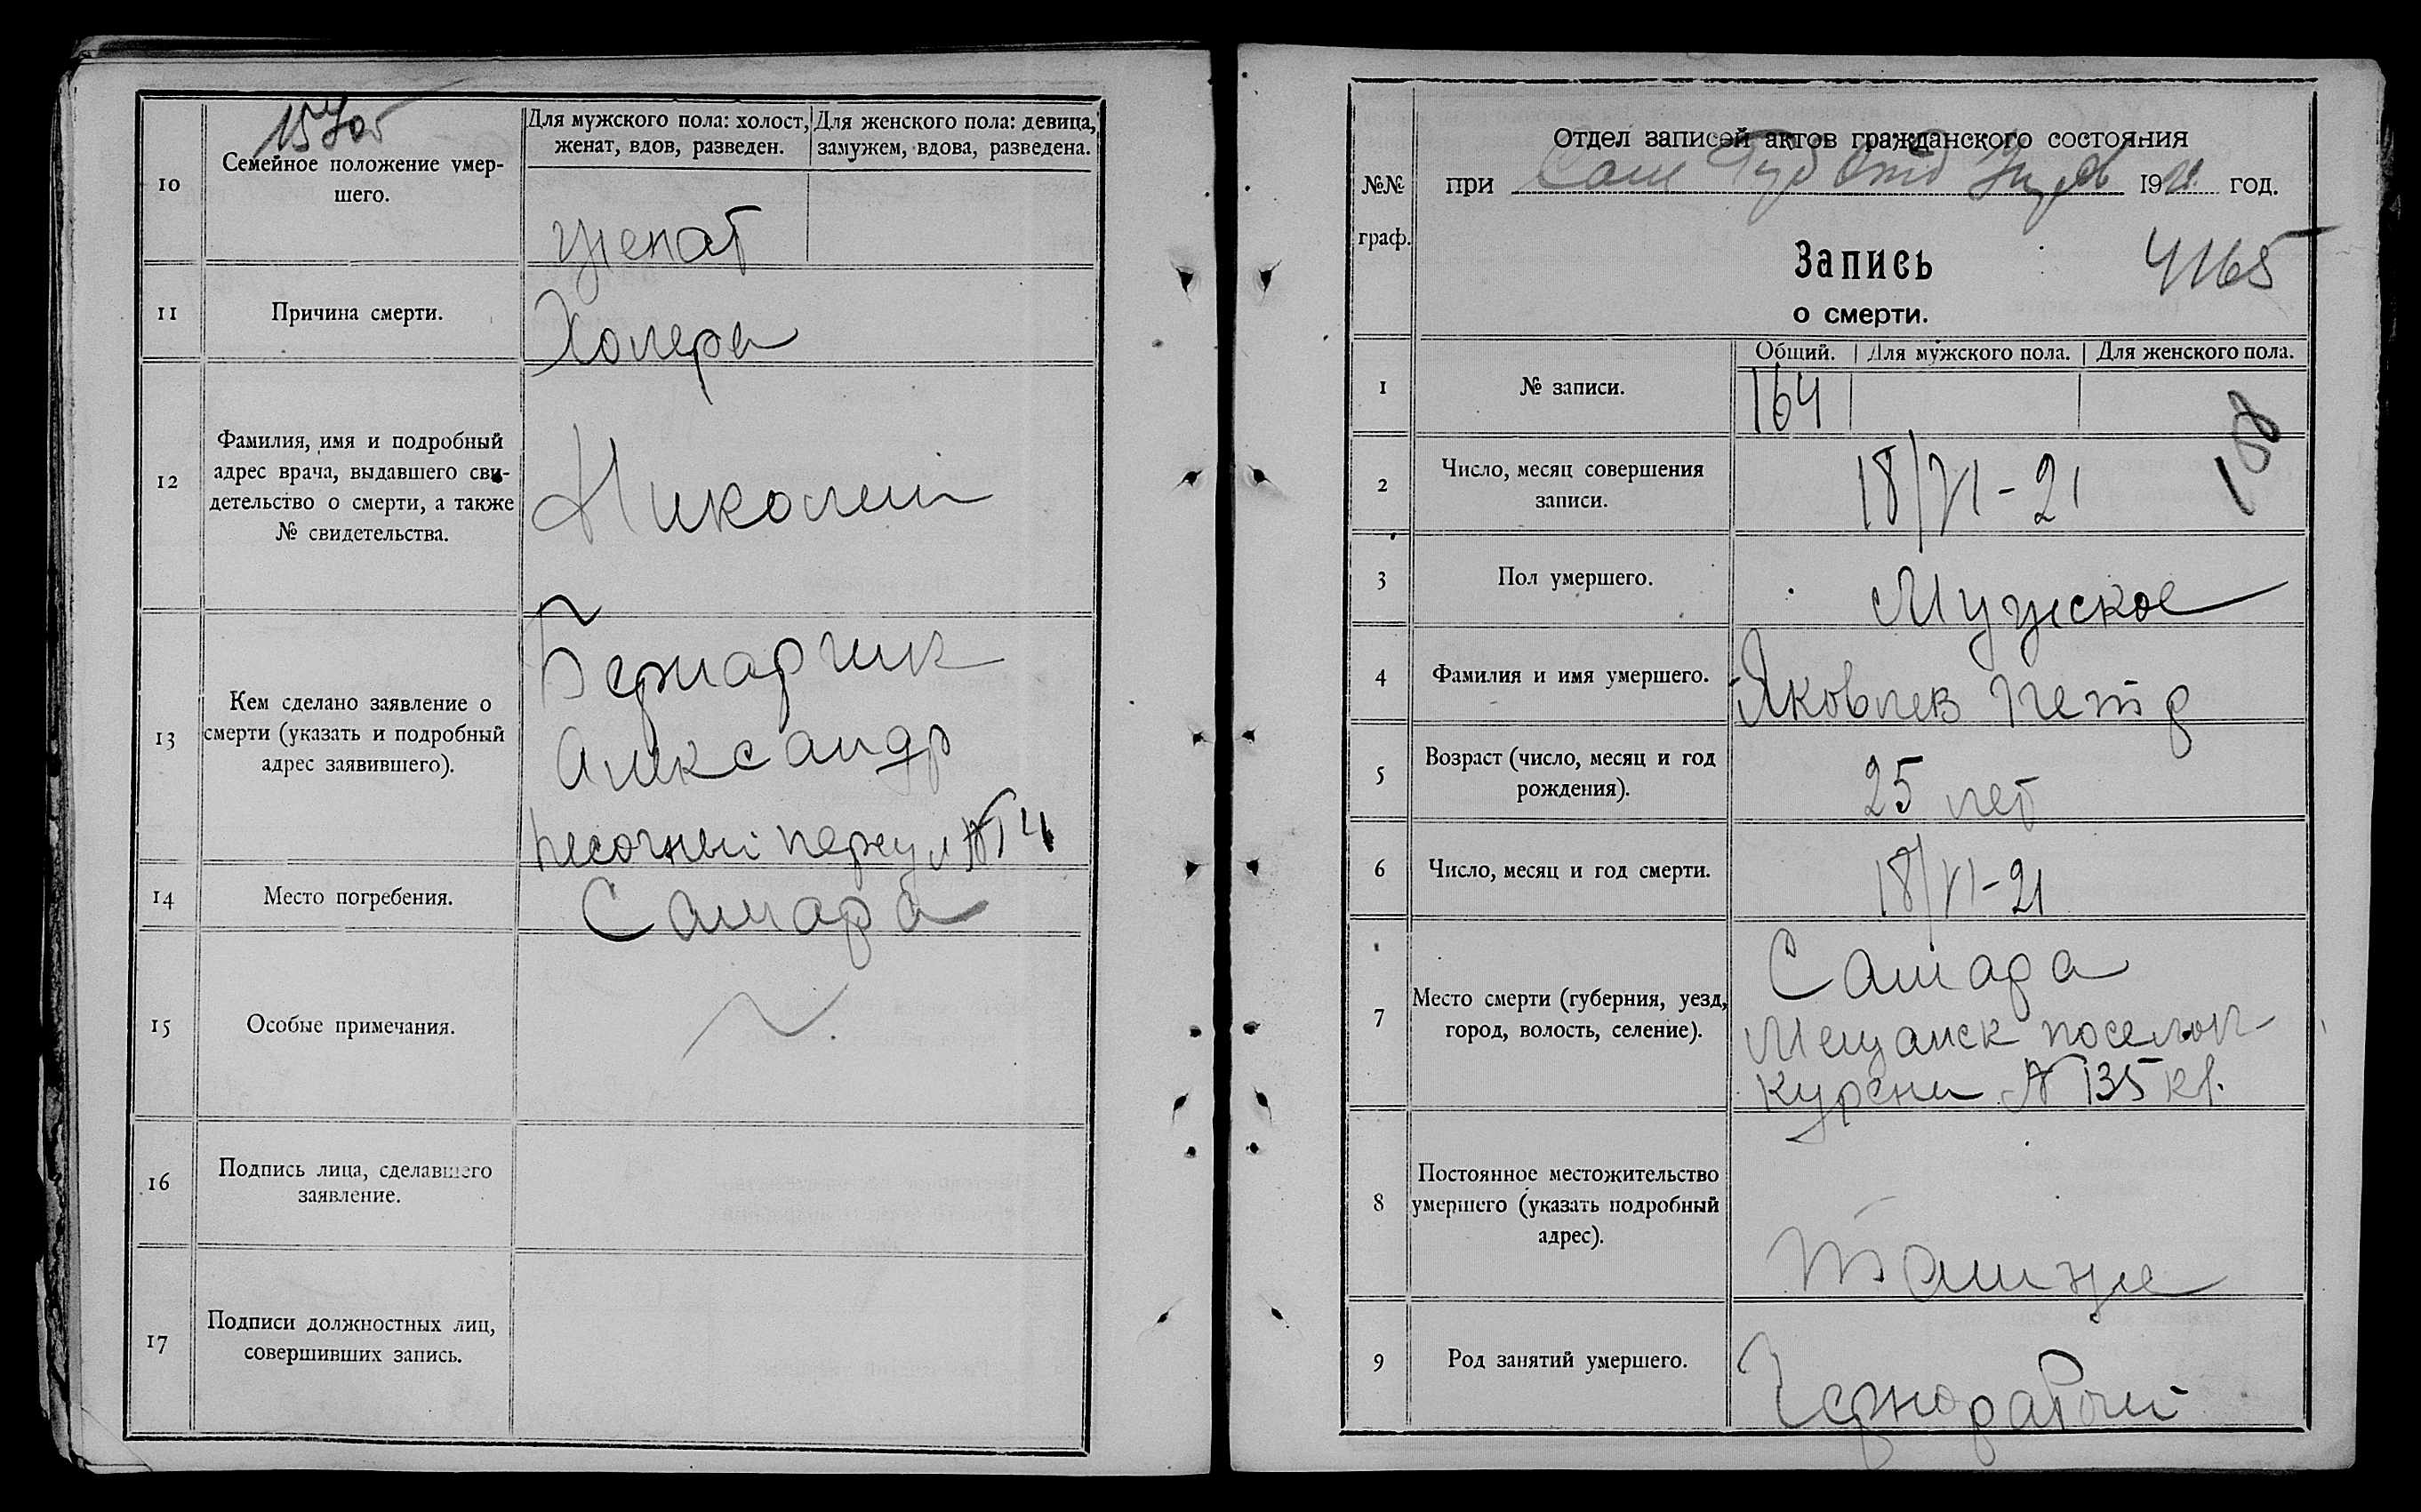 10
1570б
Семейное положение умер-
шего.
Для мужского пола: холост,
женат, вдов, разведен.
Для женского пола: девица,
замужем, вдова, разведена.
женат
11
Причина смерти.
Холера
12
Фамилия, имя и подробный
адрес врача, выдавшего сви-
детельство о смерти, а также
№ свидетельства.
Николеи
13
Кем сделано заявление о
смерти (указать и подробный
адрес заявившего).
Александр
Песочный переул № 4
14
Место погребения.
Самара
15
Особые примечания.
16
Подпись лица, сделавшего
заявление.
17
Подписи должностных лиц,
совершивших запись.
№№
граф.
Отдел записей актов гражданского состояния
при Сам Губ Отд 1921 год.
Запись
4165
о смерти.
Общий. Для мужского пола. Для женского пола.
1
№ записи.
164
2
Число, месяц совершения
записи.
18/VI-21
3
Пол умершего.
Мужское
4
Фамилия и имя умершего.
Яковлев Петр
5
Возраст (число, месяц и год
рождения).
25 лет
6
Число, месяц и год смерти.
18/VI-21
7
Место смерти (губерния, уезд,
город, волость, селение).
Самара
Мещанск поселок
№ 135 кв.
8
Постоянное местожительство
умершего (указать подробный
адрес).
тамже
9
Род занятий умершего.
Чернорабочий